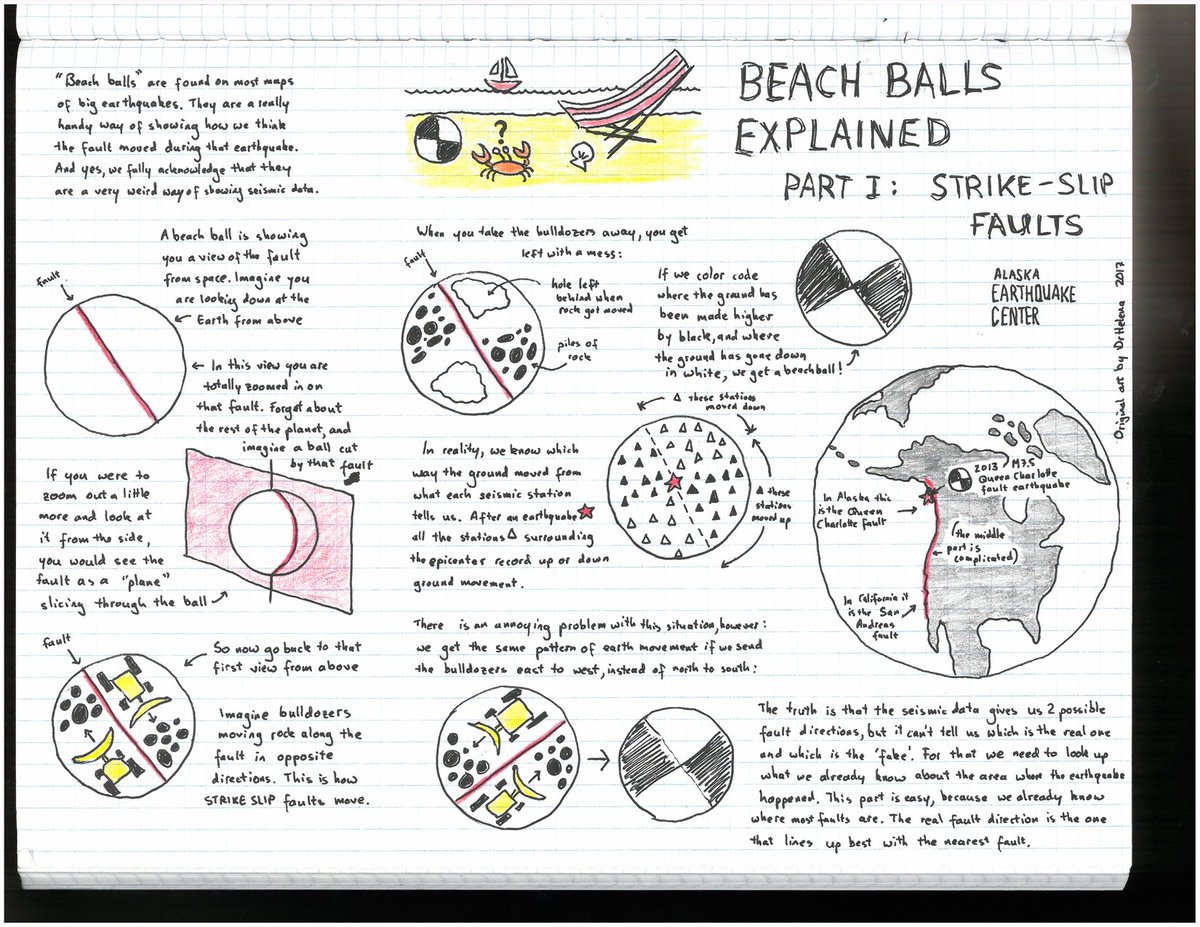 "Beach balls" are found on most maps
of big earthquakes. They are a really
handy way of showing how we think
the fault moved during that earthquake.
And yes, we fully acknowledge that they
are a very weird way of showing seismic data.
?
BEACH BALLS
EXPLAINED
PART I: STRIKE-SLIP
FAULTS
ALASKA
EARTHQUAKE
CENTER
Original art by DrHelena 2017
A beach ball is showing
you a view of the fault
from space. Imagine you
are looking down at the
Earth from above
fault
In this view you are
totally zoomed in on
that fault. Forget about
the rest of the planet, and
imagine a ball cut
by that fault
If you were to
zoom out a little
more and look at
it from the side,
you would see the
fault as a "plane"
slicing through the ball
fault
So now go back to that
first view from above
Imagine bulldozers
moving rock along the
fault in opposite
directions. This is how
STRIKE SLIP faults move.
When you take the bulldozers away, you get
left with a mess:
fault
hole left
behind when
rock got moved
piles of
rock
If we color code
where the ground has
been made higher
by black, and where
the ground has gone down
in white, we get a beachball!
In reality, we know which
way the ground moved from
what each seismic station
tells us. After an earthquake
all the stations surrounding
the epicenter record up or down
ground movement.
these stations
moved down
these
stations
moved up
There is an annoying problem with this situation, however:
we get the same pattern of earth movement if we send
the bulldozers east to west, instead of north to south:
2013 M7.5
Queen Charlotte
fault earthquake
In Alaska this
is the Queen
Charlotte fault
(the middle
part is
complicated)
In California it
is the San
Andreas
fault
The truth is that the seismic data gives us 2 possible
fault directions, but it can't tell us which is the real one
and which is the 'fake'. For that we need to look up
what we already know about the area where the earthquake
happened. This part is easy, because we already know
where most faults are. The real fault direction is the one
that lines up best with the nearest fault.